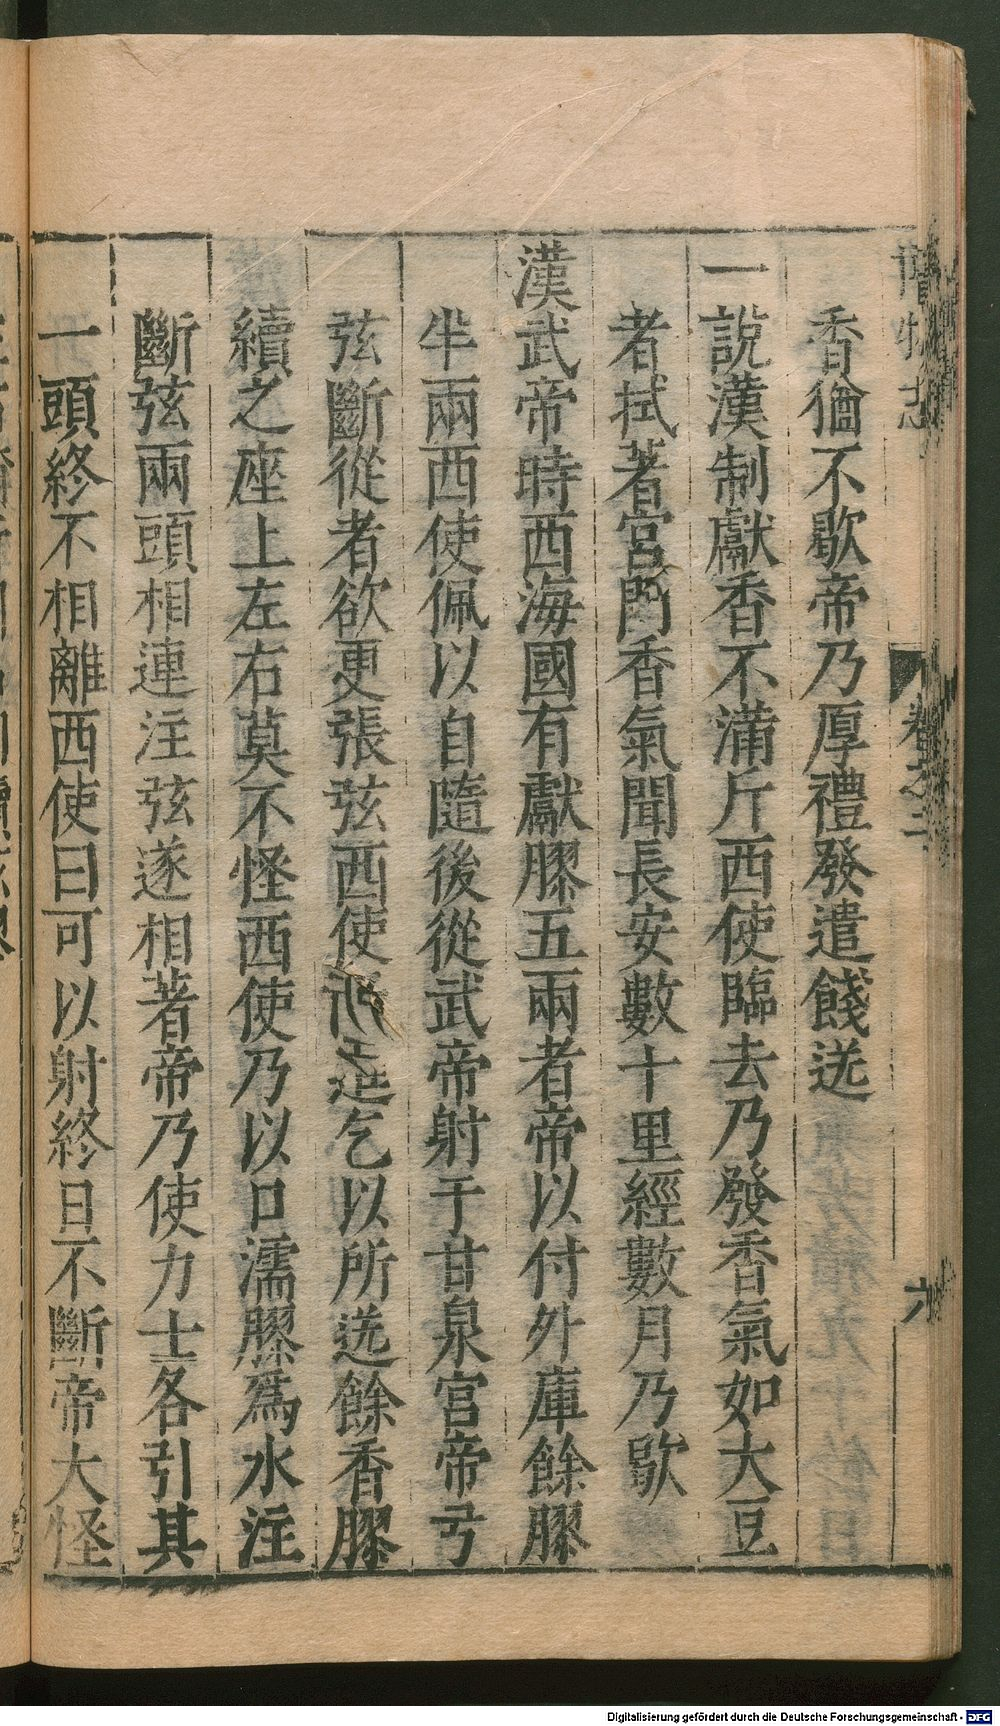 香猶不歇帝乃厚禮發遣餞送
一說漢制獻香不滿斤西使臨去乃發香氣如大豆
者拭著宮門香氣聞長安數十里經數月乃歇
漢武帝時西海國有獻膠五兩者帝以付外庫餘膠
半兩西使佩以自隨後從武帝射于甘泉宮帝弓
弦斷從者欲更張弦西使進乞以所送餘香膠
續之座上左右莫不怪西使乃以口濡膠為水注
斷弦兩頭相連注弦遂相著帝乃使力士各引其
一頭終不相離西使曰可以射終日不斷帝大怪
卷之二
六
Digitalisierung gefördert durch die Deutsche Forschungsgemeinschaft - DFG